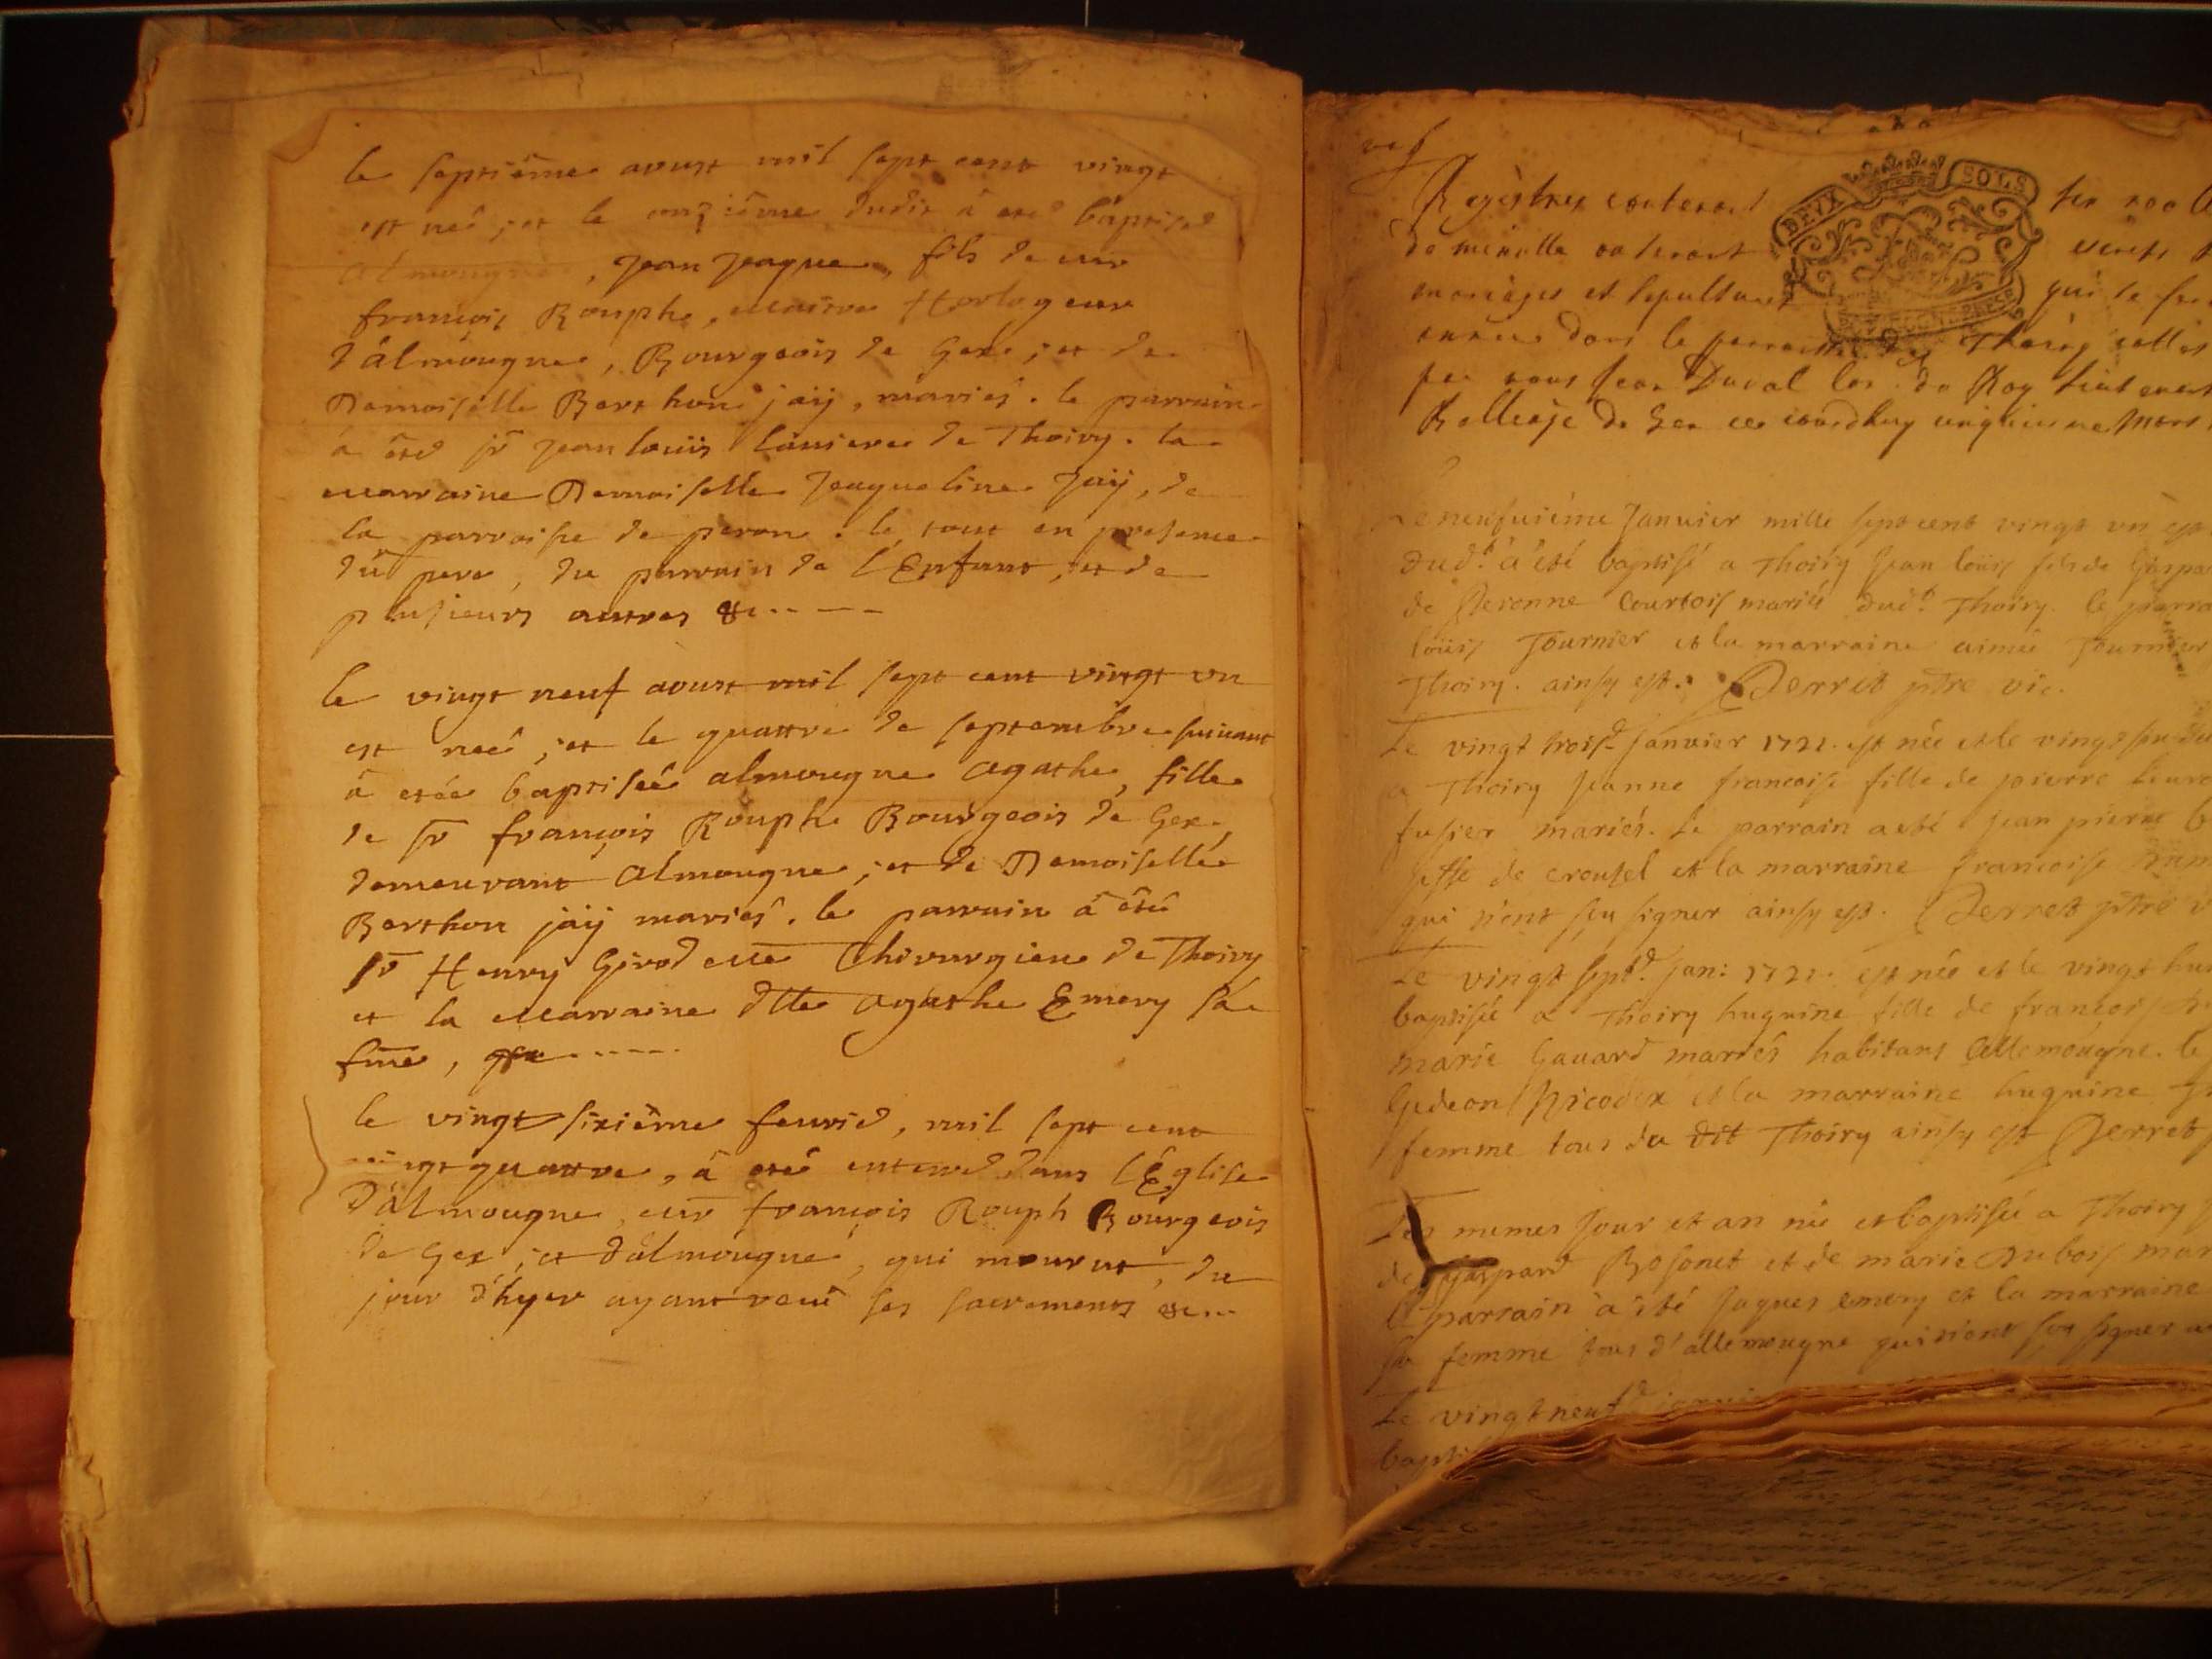 le septiême aoust mil sept cent vingt
est neê ; et le onziême dudit â eté baptisé
almougne, Jean Jaque, fils de mr
françois Rouph, maitre Horlogeur
d'âlmougne, Bourgeois de Gex ; et de
Demoiselle Berthon jaÿ, mariés. le parrain
â êté sr Jean louis laniere de Thoiry. la
marraine Demoiselle Jaqueline Jaÿ, de
la parroisse de peron. le tout en presence
du pere, du parrain de l'Enfant, et de
plusieurs autres &c.. ——
le vingt neuf aoust mil sept cent vingt un
est neê ; et le quattre de septembre suivant
â etée baptiseê almougne agathe, fille
de sr françois Rouph Bourgeois de Gex,
demeurant almougne ; et de Demoiselle
Berthon jaÿ mariés. le parrain â êté
sr Henry Girod me Chirurgien de Thoiry
et la marraine dlle agathe Emery sa
fme,
le vingt sixiême feuried, mil sept cent
vingt quattre, â eté enterré dans l'Église
d'âlmougne, mr françois Rouph Bourgeois
de Gex ; et d'âlmougne, qui mourut, du
jour d'hyer ayant receu ses sacrements &c...
DEUX SOLS
Registres contenant
mariages et sepultures qui se
Thoiry
par nous Jean Duval Con. du Roy lieutenant
Balliage de Gex
neufuiéme Janvier mille sept cent vingt un est
dud.t a été baptisé a Thoiry Jean loüis fils de Gaspar
de Peronne Courtois mariés dud.t Thoiry. le parra
loüis Tournier et la marraine aimée Tournier
Thoiry. ainsy est. Perret ptre vic.
Le vingt trois.e Janvier 1721. est née et le vingt
a Thoiry Jeanne francoise fille de pierre
fusier mariés. Le parrain a eté Jean pierre
de creusel et la marraine francoise
qui n'ont sçu signer ainsy est. Perret ptre v
Le vingt sept.e Jan: 1721. est née et le vingt hui
baptisée a Thoiry huguine fille de françois
marie Gauard mariés habitans Allemougne. le
Gedeon Nicodex et la marraine huguine
femme tous du dit Thoiry ainsy est Perret
Les memes Jour et an née et baptisée a Thoiry
de gaspard Bosonet et de marie Dubois mar
parrain a été Jaques emery et la marraine
sa femme tous d'allemougne qui n'ont sçu signer
Le vingt neuf